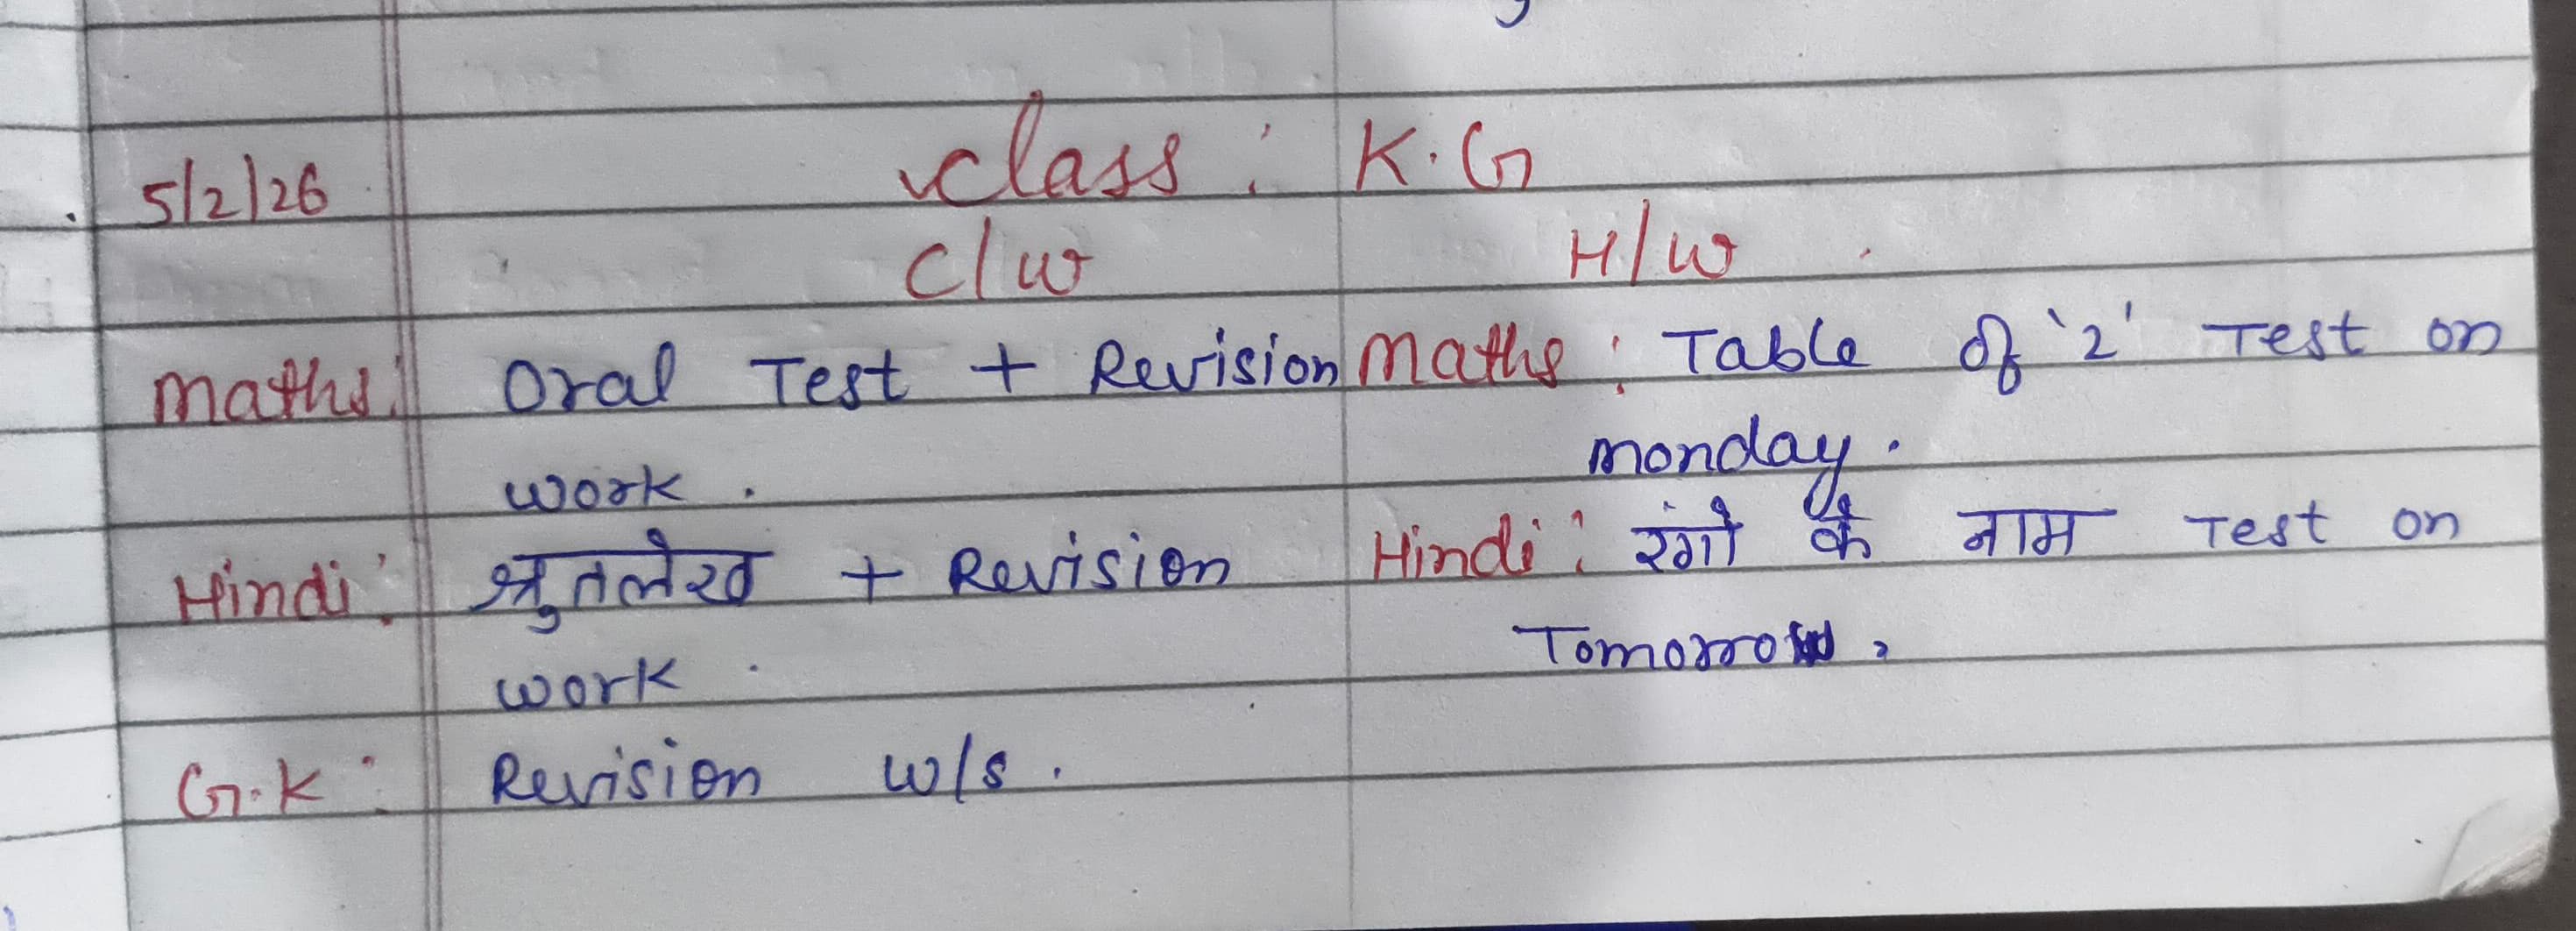 Class : K.G
5/2/26
C/W H/W
Maths: Oral Test + Revision Maths : Table of '2' Test on
work. monday.
Hindi: श्रुतलेख + Revision Hindi : रंगो के नाम Test on
work. Tomorrow.
G.K : Revision w/s.